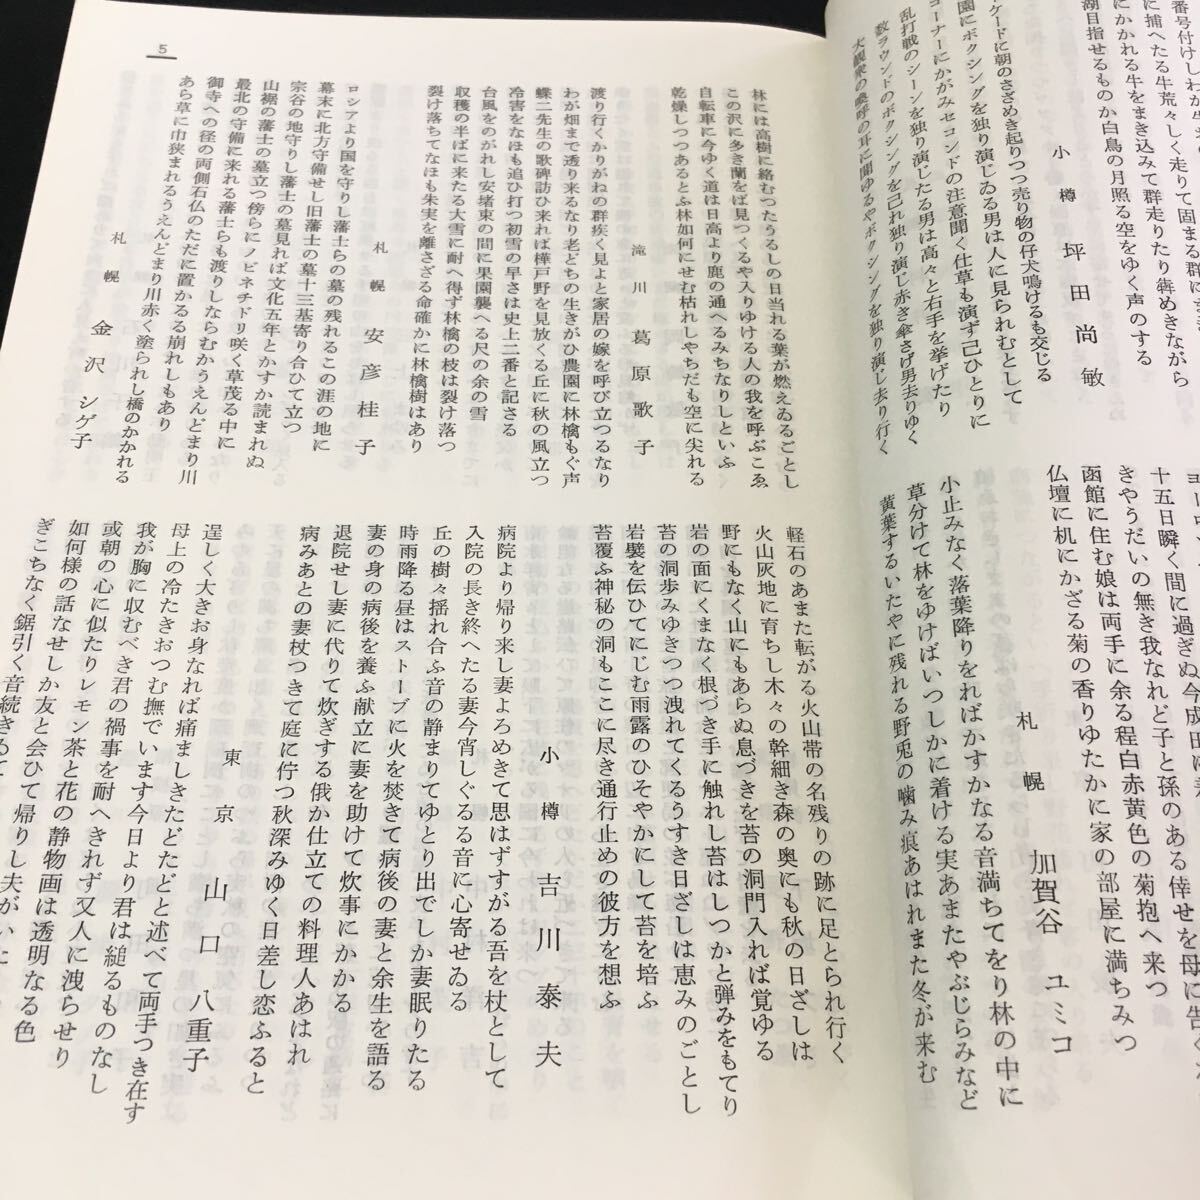 番号付けしわが
に捕へたる牛荒々しく走りて固まる群に
にかかれる牛をまき込みて群走りたり犇めきながら
湖目指せるものか白鳥の月照る空をゆく声のする
小樽 坪田尚敏
ケードに朝のさざめき起りつつ売り物の仔犬鳴けるも交じる
園にボクシングを独り演じゐる男は人に見られむとして
コーナーにかがみセコンドの注意聞く仕草も演ず己ひとりに
乱打戦のシーンを独り演じたる男は高々と右手を挙げたり
数ラウンドのボクシングを己れ独り演じ赤き傘さげ男去りゆく
大観衆の喚呼の耳に聞ゆるやボクシングを独り演じ去り行く
十五日瞬く間に過ぎぬ今成田
きやうだいの無き我なれど子と孫のある倖せを母に告
函館に住む娘は両手に余る程白赤黄色の菊抱へ来つ
仏壇に机にかざる菊の香りゆたかに家の部屋に満ちみつ
札幌 加賀谷ユミコ
小止みなく落葉降りをればかすかなる音満ちてをり林の中に
草分けて林をゆけばいつしかに着ける実あまたやぶじらみなど
黄葉するいたやに残れる野兎の噛み痕あはれまた冬が来む
5
林には高樹に絡むつたうるしの日当れる葉が燃えゐるごとし
この沢に多き蘭をば見つくるや入りゆける人の我を呼ぶこゑ
自転車に今ゆく道は日高より鹿の通へるみちなりしといふ
乾燥しつつあると林如何にせむ枯れしやちだも空に尖れる
滝川 葛原歌子
渡り行くかりがねの群疾く見よと家居の嫁を呼び立つるなり
わが畑まで透り来るなり老どちの生きがひ農園に林檎もぐ声
蝶二先生の歌碑訪ひ来れば樺戸野を見放くる丘に秋の風立つ
冷害をなほも追ひ打つ初雪の早さは史上二番と記さる
台風をのがれし安堵束の間に果園襲へる尺の余の雪
収穫の半ばに来たる大雪に耐へ得ず林檎の枝は裂け落つ
裂け落ちてなほも朱実を離さざる命確かに林檎樹はあり
札幌 安彦桂子
ロシアより国を守りし藩士らの墓の残れるこの涯の地に
幕末に北方守備せし旧藩士の墓十三基寄り合ひて立つ
宗谷の地守りし藩士の墓見れば文化五年とかすか読まれぬ
山裾の藩士の墓立つ傍らにノビネチドリ咲く草茂る中に
最北の守備に来れる藩士らも渡りしならむかうえんどまり川
御寺への径の両側石仏のただに置かるる崩れしもあり
あら草に巾狭まれるうえんどまり川赤く塗られし橋のかかれる
札幌 金沢シゲ子
軽石のあまた転がる火山帯の名残りの跡に足とられ行く
火山灰地に育ちし木々の幹細き森の奥にも秋の日ざしは
野にもなく山にもあらぬ息づきを苔の洞門入れば覚ゆる
岩の面にくまなく根づき手に触れし苔はしつかと弾みをもてり
苔の洞歩みゆきつつ洩れてくるうすき日ざしは恵みのごとし
岩襞を伝ひてにじむ雨露のひそやかにして苔を培ふ
苔覆ふ神秘の洞もここに尽き通行止めの彼方を想ふ
小樽 吉川泰夫
病院より帰り来し妻よろめきて思はずすがる吾を杖として
入院の長き終へたる妻今宵しぐるる音に心寄せゐる
丘の樹々揺れ合ふ音の静まりてゆとり出でしか妻眠りたる
時雨降る昼はストーブに火を焚きて病後の妻と余生を語る
妻の身の病後を養ふ献立に妻を助けて炊事にかかる
退院せし妻に代りて炊ぎする俄か仕立ての料理人あはれ
病みあとの妻杖つきて庭に佇つ秋深みゆく日差し恋ふると
東京 山口八重子
逞しく大きお身なれば痛ましきたどたどと述べて両手つき在す
母上の冷たきおつむ撫でいます今日より君は縋るものなし
我が胸に収むべき君の禍事を耐へきれず又人に洩らせり
或朝の心に似たりレモン茶と花の静物画は透明なる色
如何様の話なせしか友と会ひて帰りし夫がいた
ぎこちなく鋸引く音続きゐて